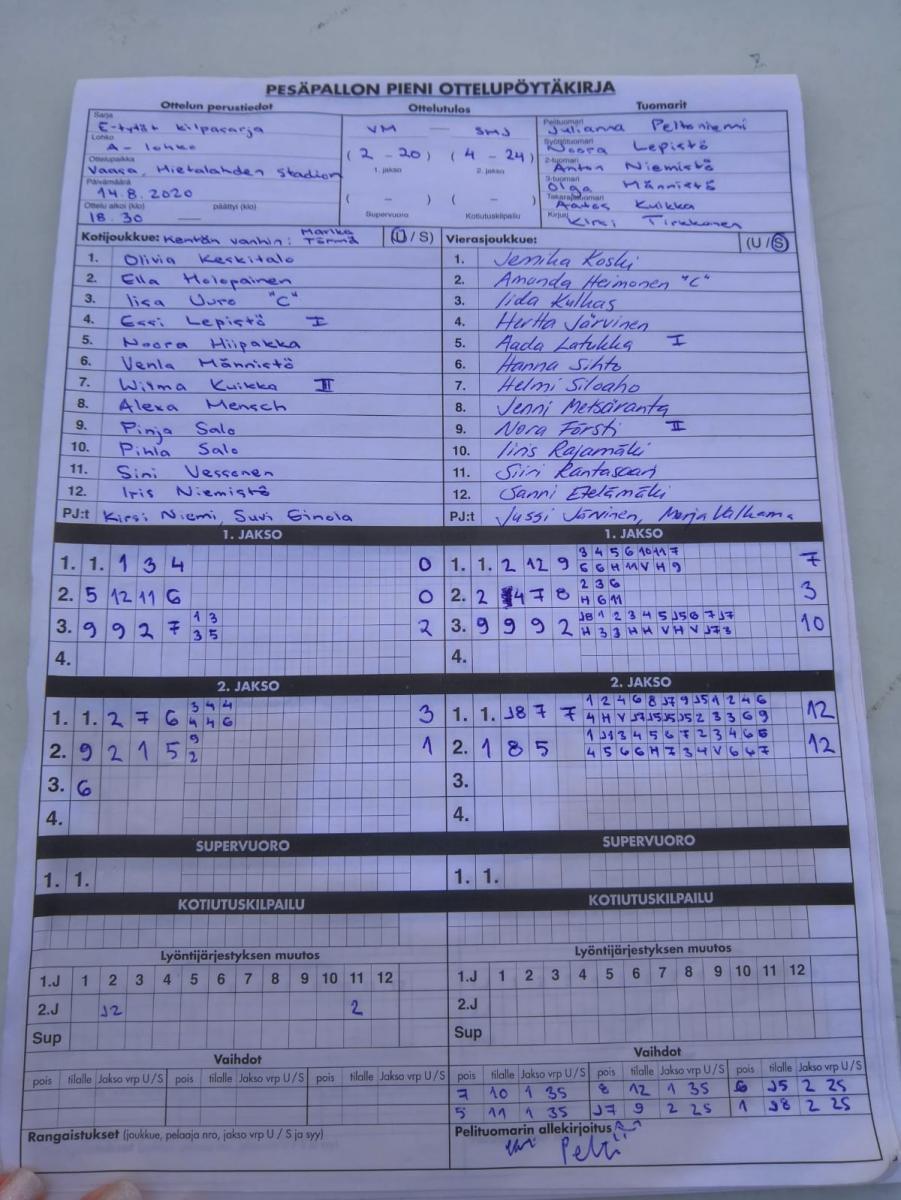 PESÄPALLON PIENI OTTELUPÖYTÄKIRJA
Ottelun perustiedot
Sarja
E-tytöt kilpasarja
Lohko
A-lohko
Ottelupaikka
Vaasa, Hietalahden stadion
Päivämäärä
14.8.2020
Ottelu alkoi (klo) päättyi (klo)
18.30 —
Ottelutulos
VM — SMJ
(2 - 20) (4 - 24)
1. jakso 2. jakso
( - ) ( - )
Supervuoro Kotiutuskilpailu
Tuomarit
Pelituomari
Julianna Peltoniemi
Syöttötuomari
Noora Lepistö
2-tuomari
Anton Niemistö
3-tuomari
Olga Männistö
Takarajatuomari
Aatos Kuikka
Kirjuri
Kirsi Tirkkonen
Kotijoukkue: Kentän vanhin: Marika Törmä (U / S)
1. Olivia Keskitalo
2. Ella Holopainen
3. Iisa Uuro "C"
4. Essi Lepistö I
5. Noora Hiipakka
6. Venla Männistö
7. Wilma Kuikka II
8. Alexa Mensch
9. Pinja Salo
10. Pihla Salo
11. Sini Vessonen
12. Iris Niemistö
PJ:t Kirsi Niemi, Suvi Einola
Vierasjoukkue: (U / S)
1. Jemika Koski
2. Amanda Heimonen "C"
3. Iida Kulhas
4. Hertta Järvinen
5. Aada Latukka I
6. Hanna Sihto
7. Helmi Siloaho
8. Jenni Metsäranta
9. Nora Försti II
10. Iiris Rajamäki
11. Siiri Rantasaari
12. Sanni Etelämäki
PJ:t Jussi Järvinen, Marja Valkama
1. JAKSO
1. 1. 1 3 4 0
2. 5 12 11 6 0
3. 9 9 2 7 1 3 2
3 5
4.
1. JAKSO
1. 1. 2 12 9 3 4 5 6 10 11 7 7
6 6 H 11 V H 9
2. 2 4 7 8 2 3 6 3
H 6 11
3. 9 9 9 2 J8 1 2 3 4 5 J5 6 7 J7 10
H 3 3 H H V H V J7 3
4.
2. JAKSO
1. 1. 2 7 6 3 4 4 3
4 4 6
2. 9 2 1 5 9 1
2
3. 6
4.
2. JAKSO
1. 1. J8 7 7 1 2 4 6 8 J7 9 J5 1 2 4 6 12
4 H V J7 J5 J5 J5 2 3 3 6 9
2. 1 8 5 1 J1 3 4 5 6 7 2 3 4 6 6 12
4 5 6 6 H 7 3 4 V 6 6 7
3.
4.
SUPERVUORO
1. 1.
SUPERVUORO
1. 1.
KOTIUTUSKILPAILU
KOTIUTUSKILPAILU
Lyöntijärjestyksen muutos
1.J 1 2 3 4 5 6 7 8 9 10 11 12
2.J J2 2
Sup
Lyöntijärjestyksen muutos
1.J 1 2 3 4 5 6 7 8 9 10 11 12
2.J
Sup
Vaihdot
pois tilalle Jakso vrp U / S pois tilalle Jakso vrp U / S pois tilalle Jakso vrp U / S
Vaihdot
pois tilalle Jakso vrp U / S pois tilalle Jakso vrp U / S pois tilalle Jakso vrp U / S
7 10 1 3S 8 12 1 3S 6 J5 2 2S
5 11 1 3S J7 9 2 2S 1 J8 2 2S
Rangaistukset (joukkue, pelaaja nro, jakso vrp U / S ja syy)
Pelituomarin allekirjoitus